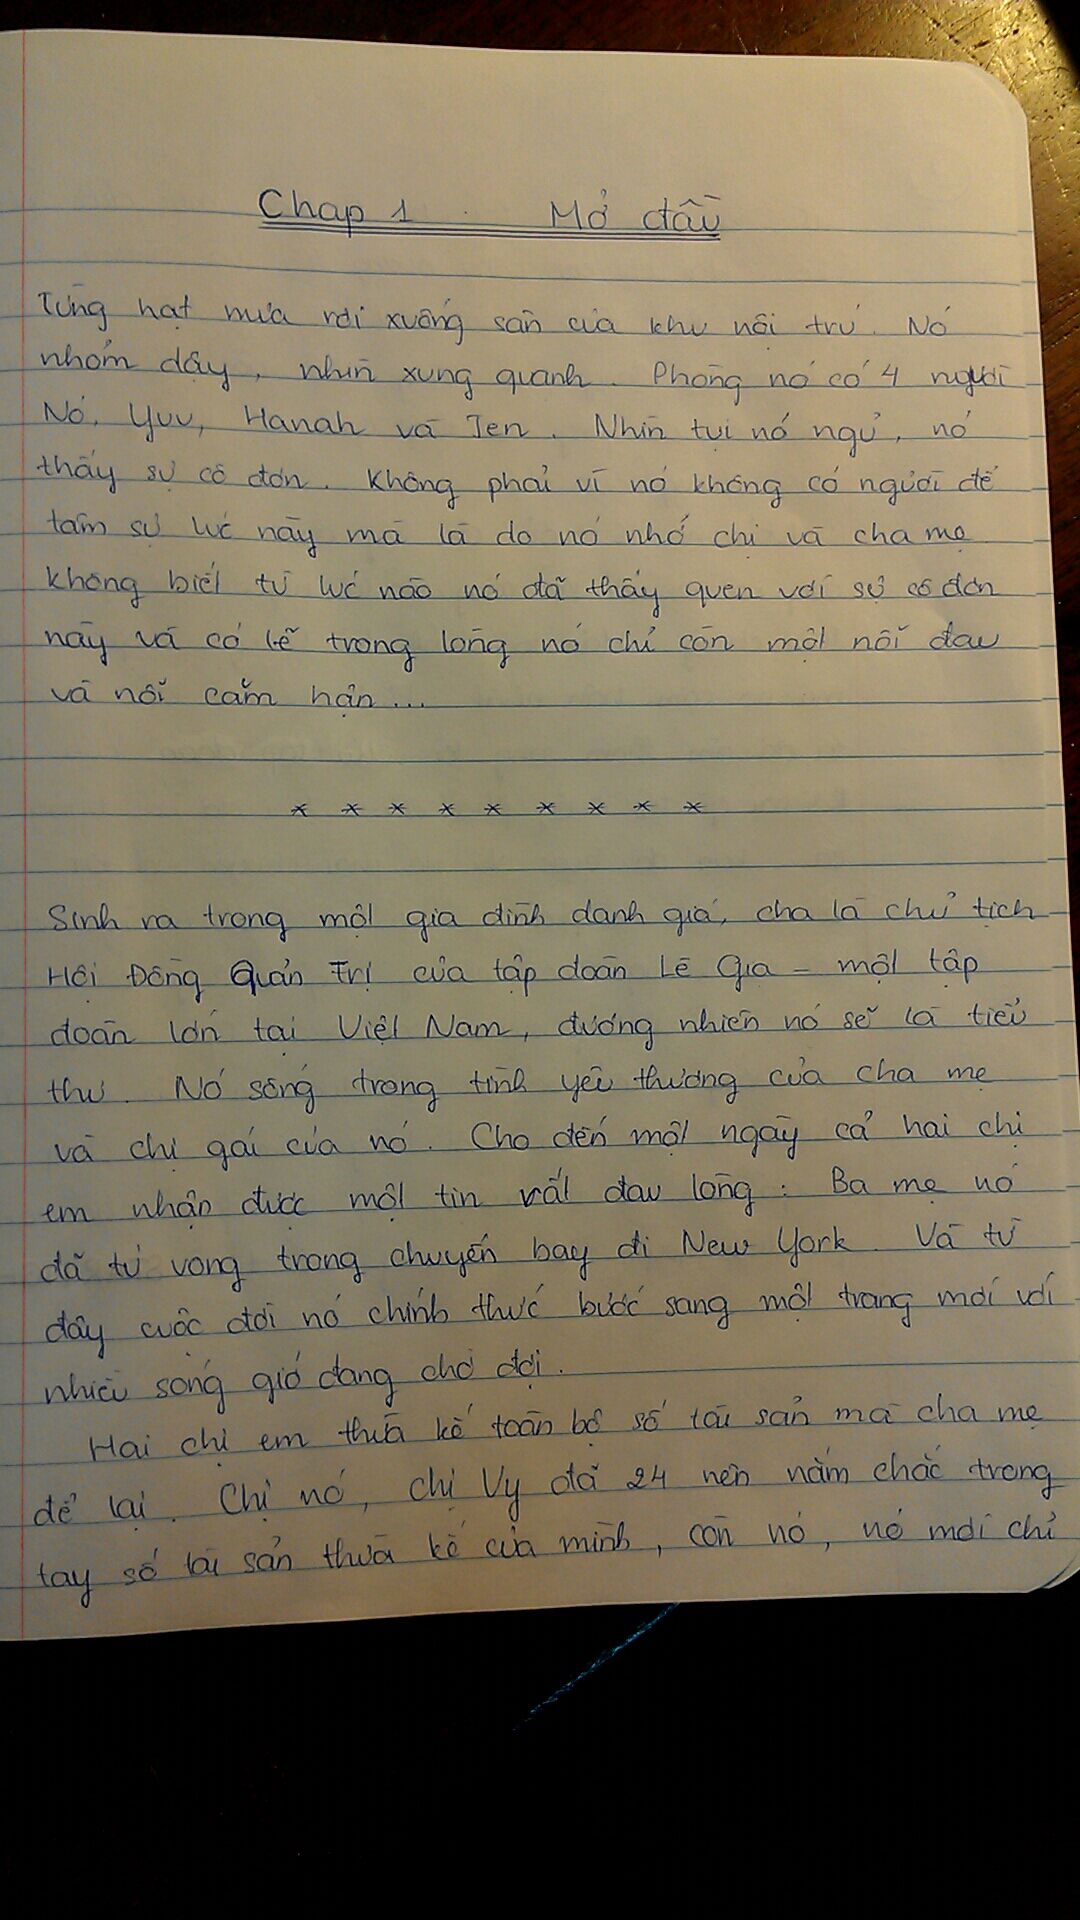 Chap 1 Mở đầu
Từng hạt mưa rơi xuống sàn của khu nội trú. Nó
nhổm dậy, nhìn xung quanh. Phòng nó có 4 người
Nó, Yuu, Hanah và Jen. Nhìn tụi nó ngủ, nó
thấy sự cô đơn. Không phải vì nó không có người để
tâm sự lúc này mà là do nó nhớ chị và cha mẹ
không biết từ lúc nào nó đã thấy quen với sự cô đơn
này và có lẽ trong lòng nó chỉ còn một nỗi đau
và nỗi căm hận...
* * * * * * * * *
Sinh ra trong một gia đình danh giá, cha là chủ tịch
Hội Đồng Quản Trị của tập đoàn Lê Gia - một tập
đoàn lớn tại Việt Nam, đương nhiên nó sẽ là tiểu
thư. Nó sống trong tình yêu thương của cha mẹ
và chị gái của nó. Cho đến một ngày cả hai chị
em nhận được một tin rất đau lòng : Ba mẹ nó
đã tử vong trong chuyến bay đi New York. Và từ
đây cuộc đời nó chính thức bước sang một trang mới với
nhiều sóng gió đang chờ đợi.
Hai chị em thừa kế toàn bộ số tài sản mà cha mẹ
để lại. Chị nó, chị Vy đã 24 nên nắm chắc trong
tay số tài sản thừa kế của mình, còn nó, nó mới chỉ